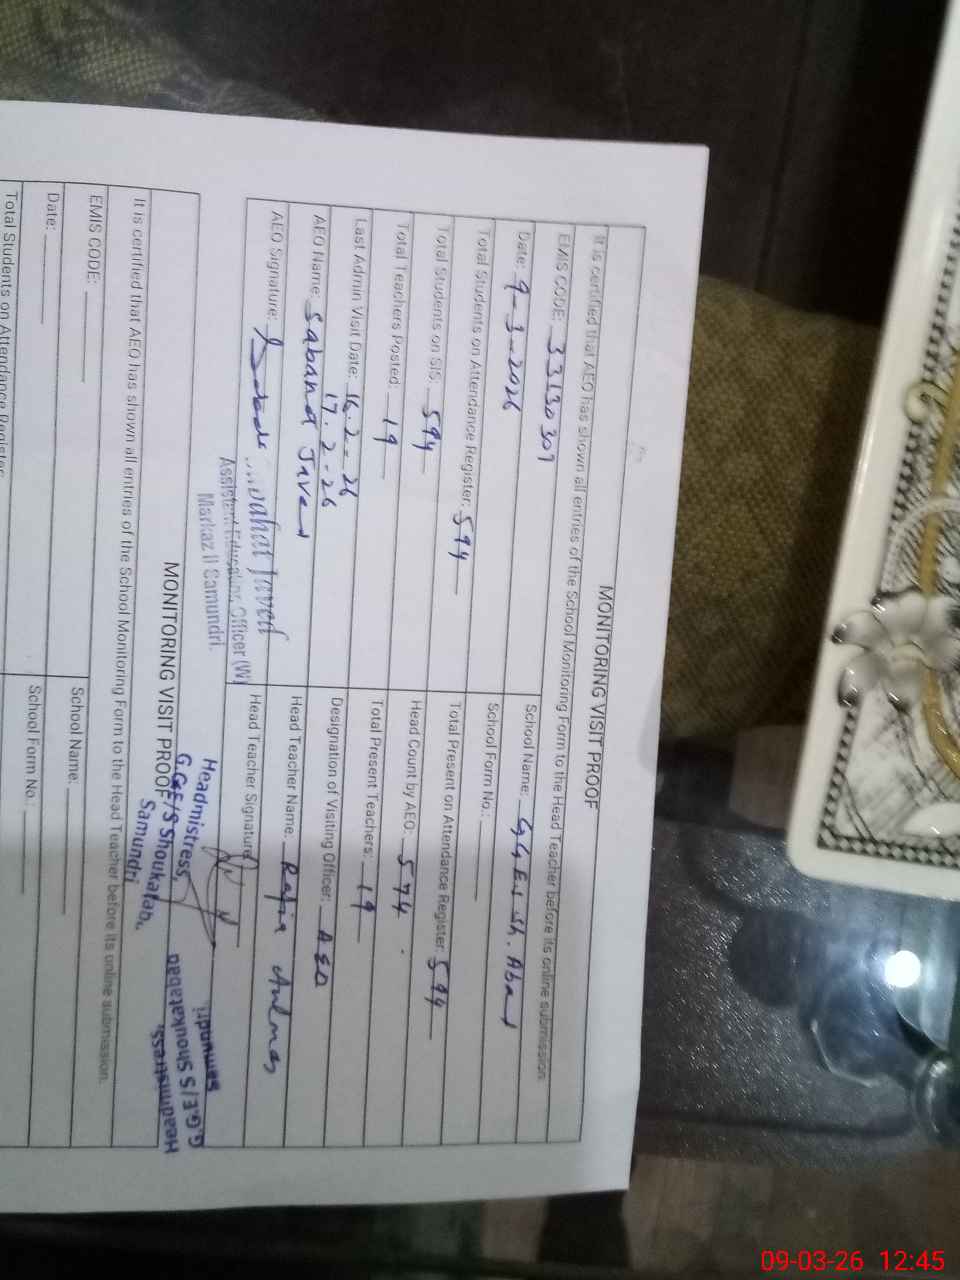 MONITORING VISIT PROOF
It is certified that AEO has shown all entries of the School Monitoring Form to the Head Teacher before its online submission.
EMIS CODE: 33130309
School Name: G.G.E.S Sh. Abad
Date: 9-3-2026
School Form No.:
Total Students on Attendance Register: 594
Total Present on Attendance Register:
Total Students on SIS: 594
Head Count by AEO: 574
Total Teachers Posted: 19
Total Present Teachers: 19
Last Admin Visit Date: 16.2-26
17.2-26
Designation of Visiting Officer: AEO
AEO Name: Sabahat Javed
Head Teacher Name: Rafia
AEO Signature:
Head Teacher Signature
Javed
Assistant Education Officer (W)
Markaz II Samundri.
Headmistress,
G.GE/S Shoukatabad
Samundri
Headmistress,
G.G.E/S Shoukatabad
Samundri
MONITORING VISIT PROOF
It is certified that AEO has shown all entries of the School Monitoring Form to the Head Teacher before its online submission.
EMIS CODE:
School Name:
Date:
School Form No.:
Total Students on Attendance Register:
09-03-26 12:45